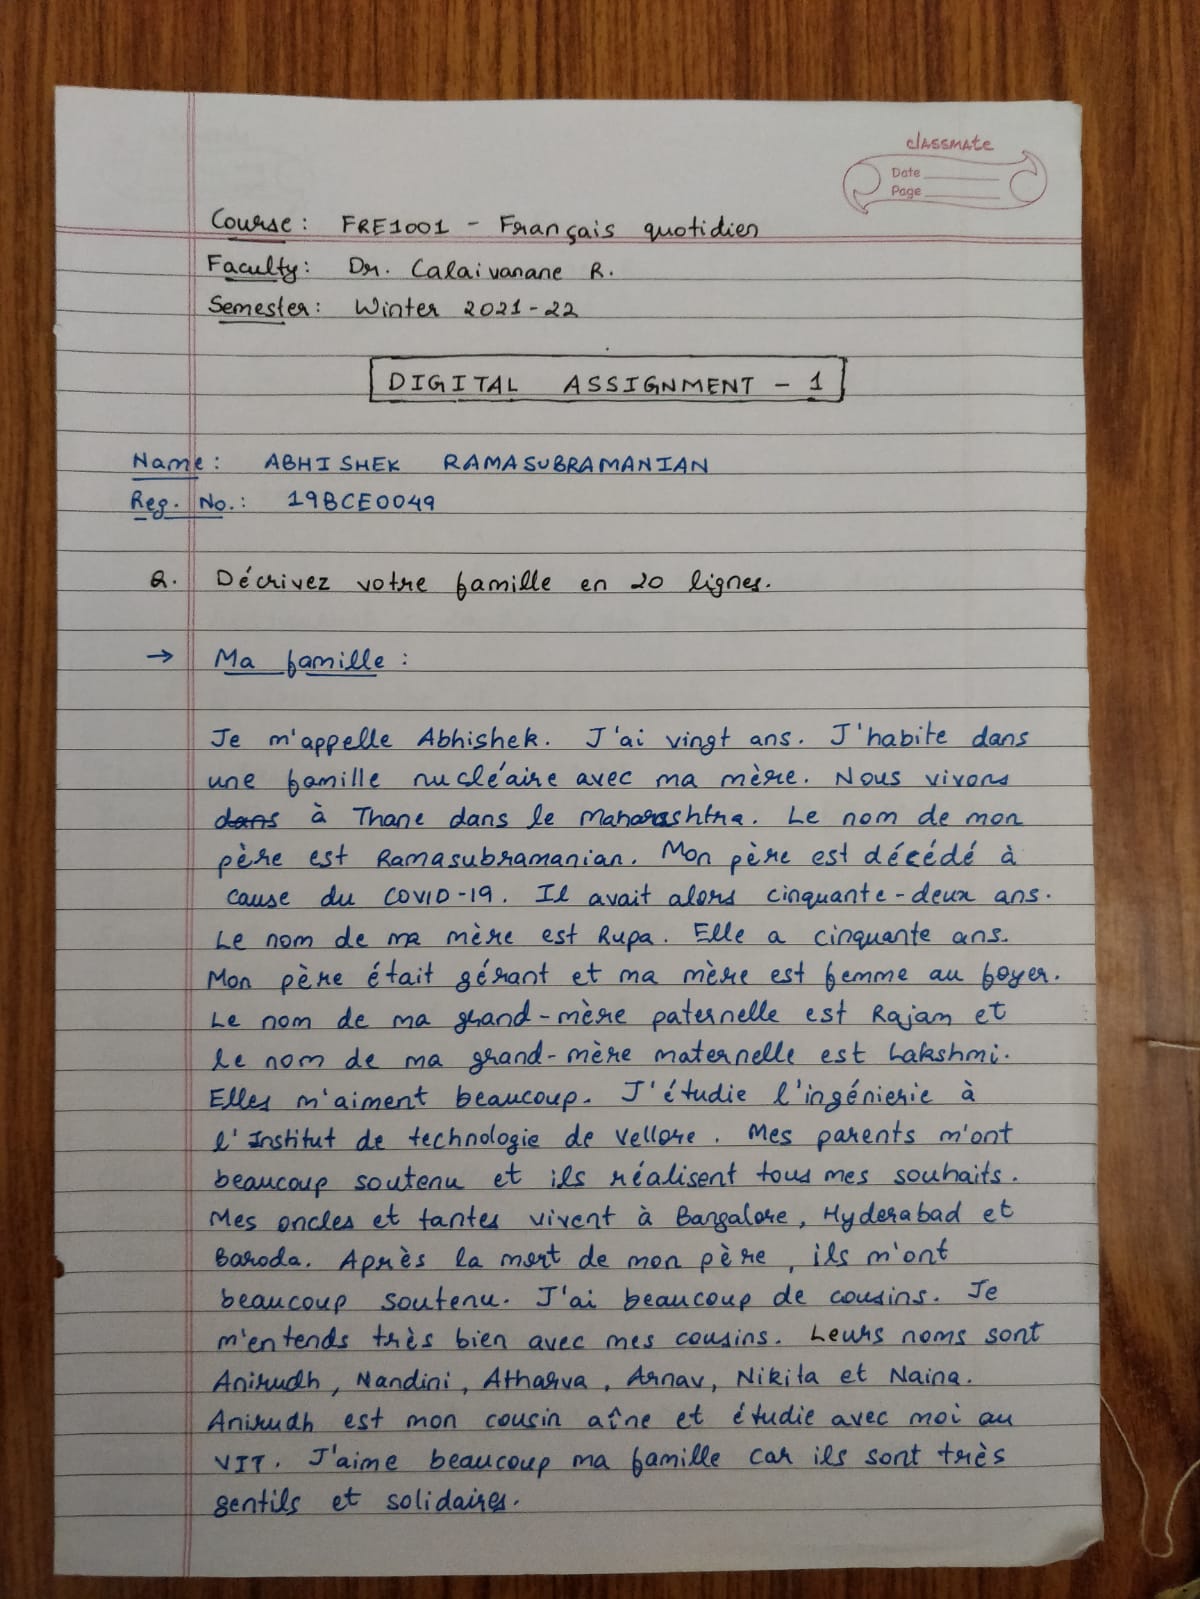 classmate
Date
Page
Course: FRE1001 - Français quotidien
Faculty: Dr. Calaivanane R.
Semester: Winter 2021-22
DIGITAL ASSIGNMENT - 1
Name: ABHISHEK RAMASUBRAMANIAN
Reg. No.: 19BCE0049
Q. Décrivez votre famille en 20 lignes.
→ Ma famille :
Je m'appelle Abhishek. J'ai vingt ans. J'habite dans
une famille nucléaire avec ma mère. Nous vivons
dans à Thane dans le Maharashtra. Le nom de mon
père est Ramasubramanian. Mon père est décédé à
cause du COVID-19. Il avait alors cinquante-deux ans.
Le nom de ma mère est Rupa. Elle a cinquante ans.
Mon père était gérant et ma mère est femme au foyer.
Le nom de ma grand-mère paternelle est Rajam et
le nom de ma grand-mère maternelle est Lakshmi.
Elles m'aiment beaucoup. J'étudie l'ingénierie à
l'Institut de technologie de Vellore. Mes parents m'ont
beaucoup soutenu et ils réalisent tous mes souhaits.
Mes oncles et tantes vivent à Bangalore, Hyderabad et
Baroda. Après la mort de mon père, ils m'ont
beaucoup soutenu. J'ai beaucoup de cousins. Je
m'entends très bien avec mes cousins. Leurs noms sont
Anirudh, Nandini, Atharva, Arnav, Nikita et Naina.
Anirudh est mon cousin aîne et étudie avec moi au
VIT. J'aime beaucoup ma famille car ils sont très
gentils et solidaires.